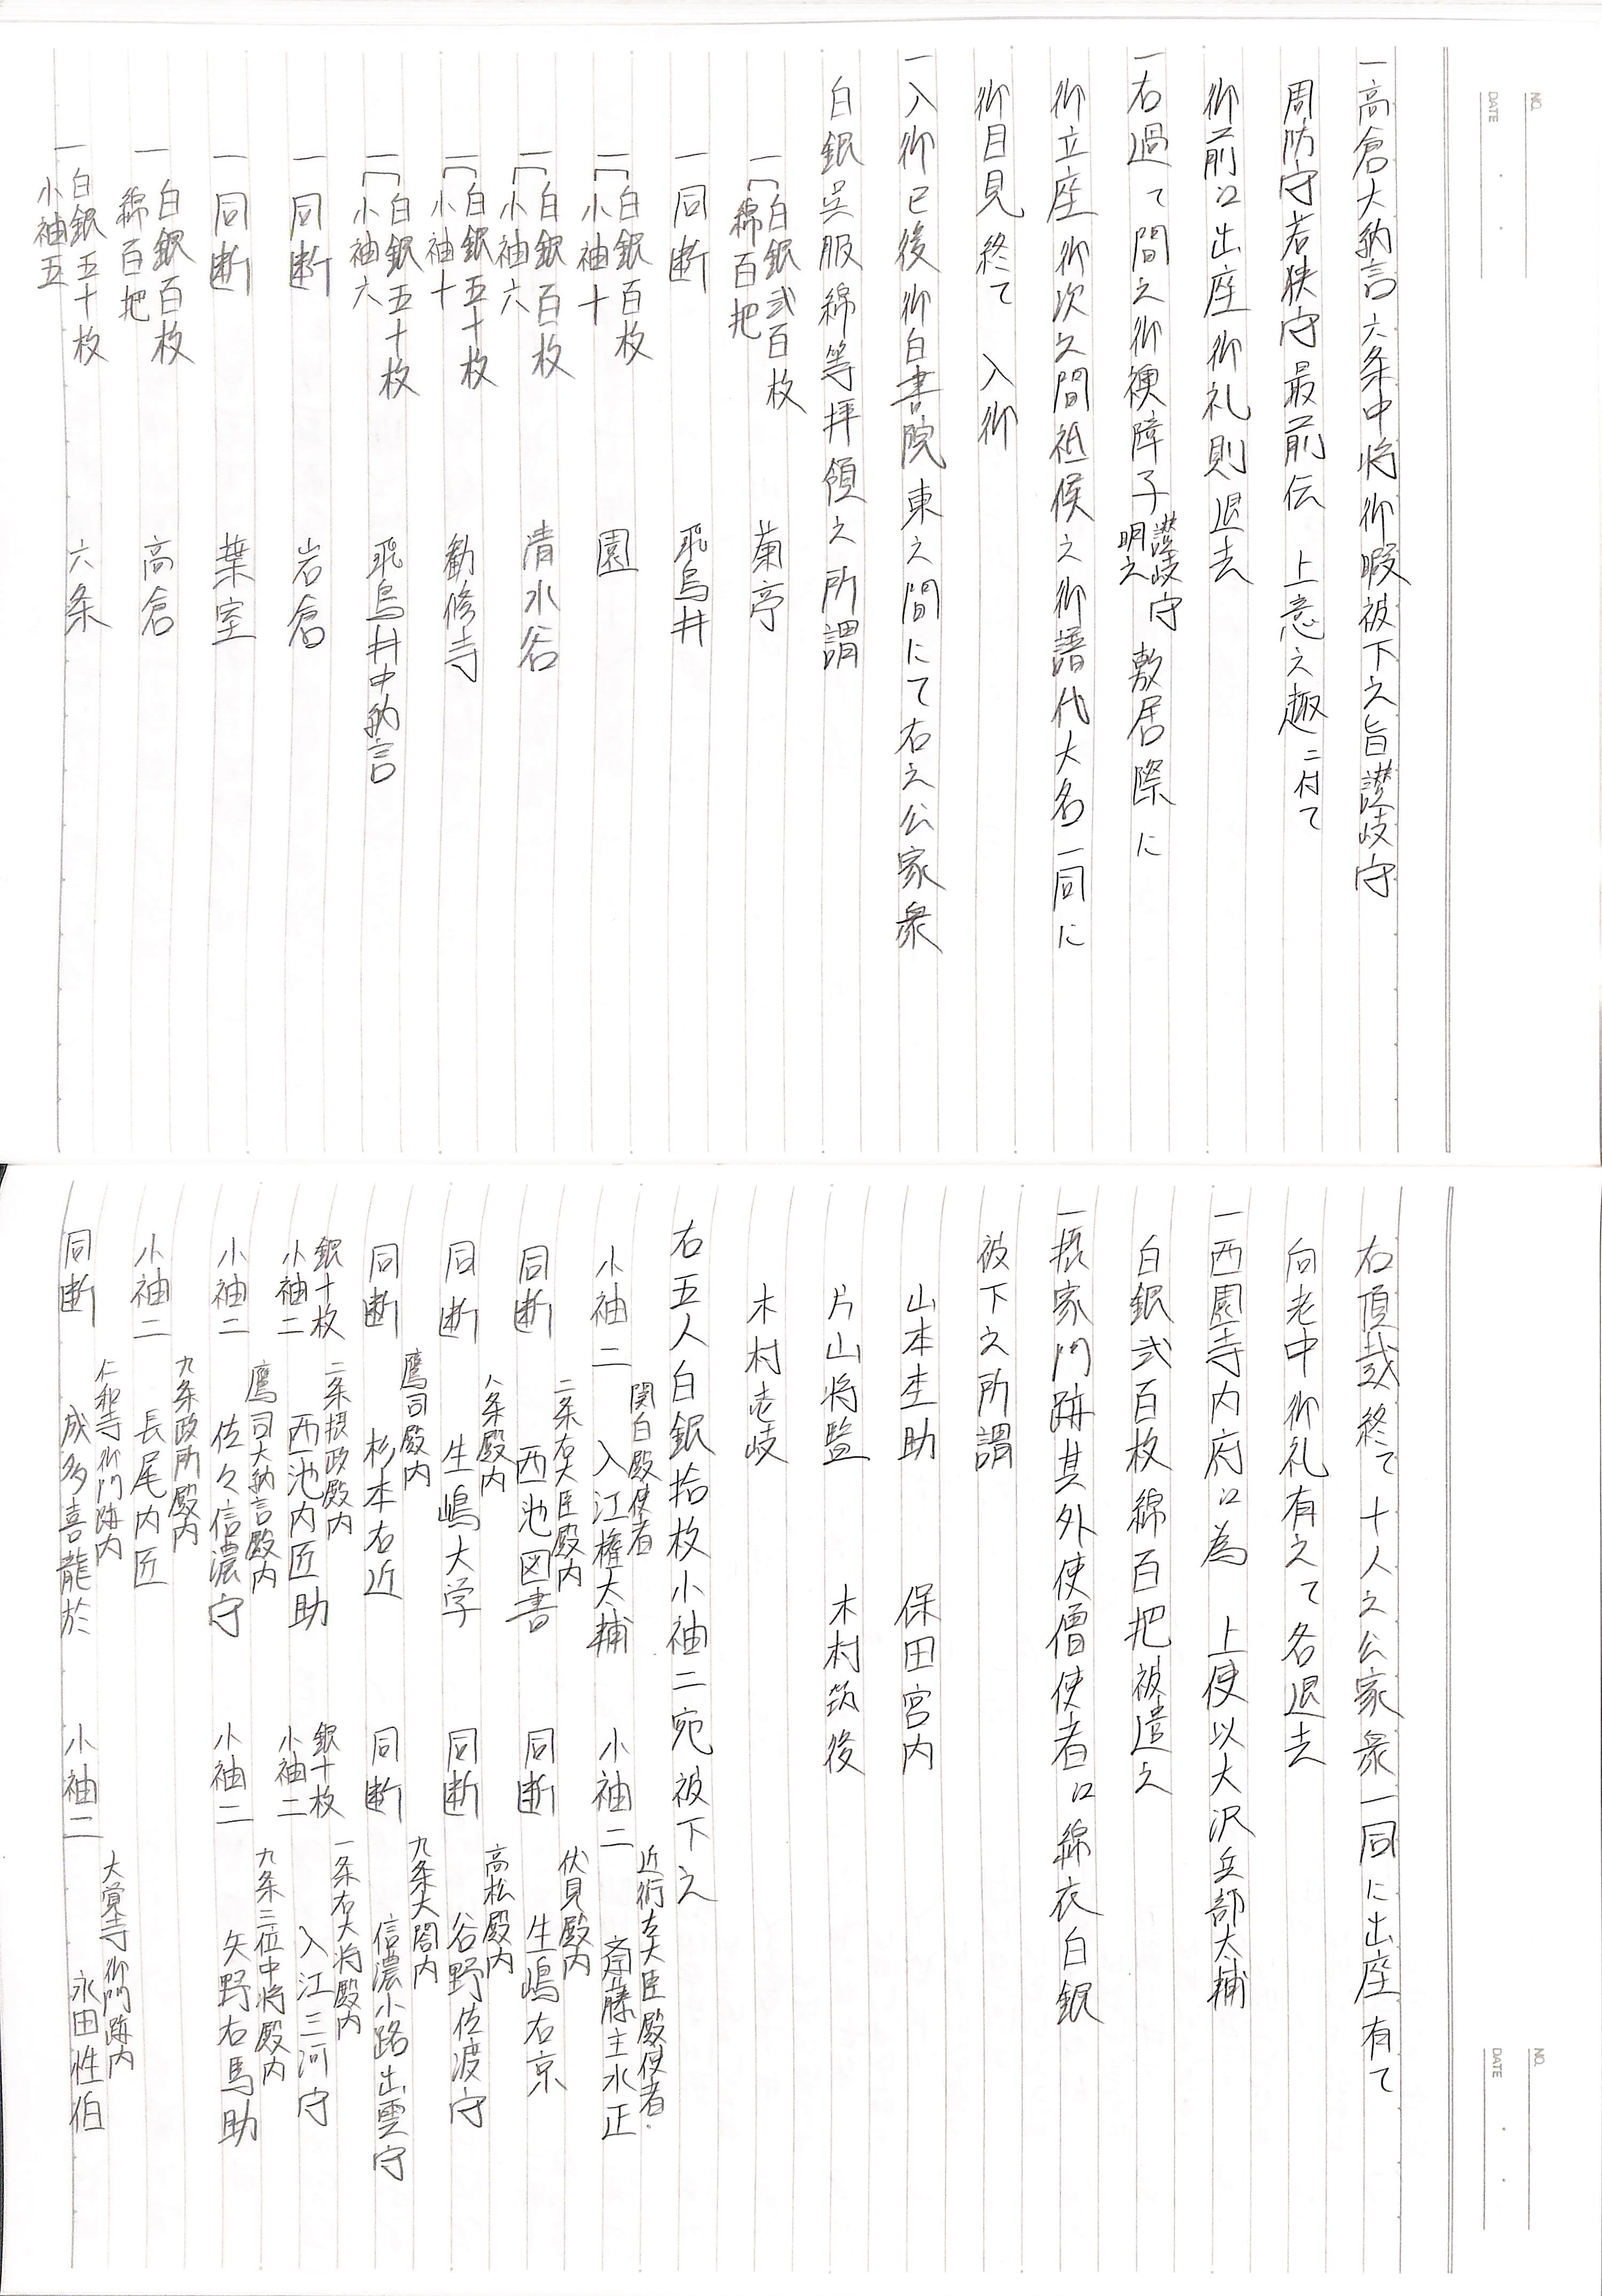 NO.
DATE
一高倉大納言六条中将御暇被下之旨讃岐守
周防守若狭守最前伝　上意之趣ニ付て
御前江出座御礼則退去
一右過て間之御襖障子讃岐守明之　敷居際に
御立座御次之間祗候之御譜代大名一同に
御目見終て　入御
一入御已後御白書院東之間にて右之公家衆
白銀呉服綿等拝領之所謂
一白銀弐百枚　綿百把　菊亭
一同断　飛鳥井
一白銀百枚　小袖十　園
一白銀百枚　小袖六　清水谷
一白銀五十枚　小袖十　勧修寺
一白銀五十枚　小袖六　飛鳥井中納言
一同断　岩倉
一同断　葉室
一白銀百枚　綿百把　高倉
一白銀五十枚　小袖五　六条
NO.
DATE
右頂戴終て十人之公家衆一同に出座有て
向老中御礼有之て各退去
一西園寺内府江為　上使以大沢兵部太輔
白銀弐百枚綿百把被遣之
一摂家門跡其外使僧使者江綿衣白銀
被下之所謂
山本杢助　保田宮内
片山将監　木村筑後
木村壱岐
右五人白銀拾枚小袖二宛被下之
小袖二　関白殿使者　入江権太輔　小袖二　近衛左大臣殿使者　斎藤主水正
同断　二条右大臣殿内　西池図書　同断　伏見殿内　生嶋右京
同断　八条殿内　生嶋大学　同断　高松殿内　谷野佐渡守
同断　鷹司殿内　杉本右近　同断　九条大閤内　信濃小路出雲守
銀十枚　小袖二　二条摂政殿内　西池内匠助　銀十枚　小袖二　一条右大将殿内　入江三河守
小袖二　鷹司大納言殿内　佐々信濃守　小袖二　九条三位中将殿内　矢野右馬助
小袖二　九条政所殿内　長尾内匠
同断　仁和寺御門跡内　成多喜龍於　小袖二　大覚寺御門跡内　永田性伯